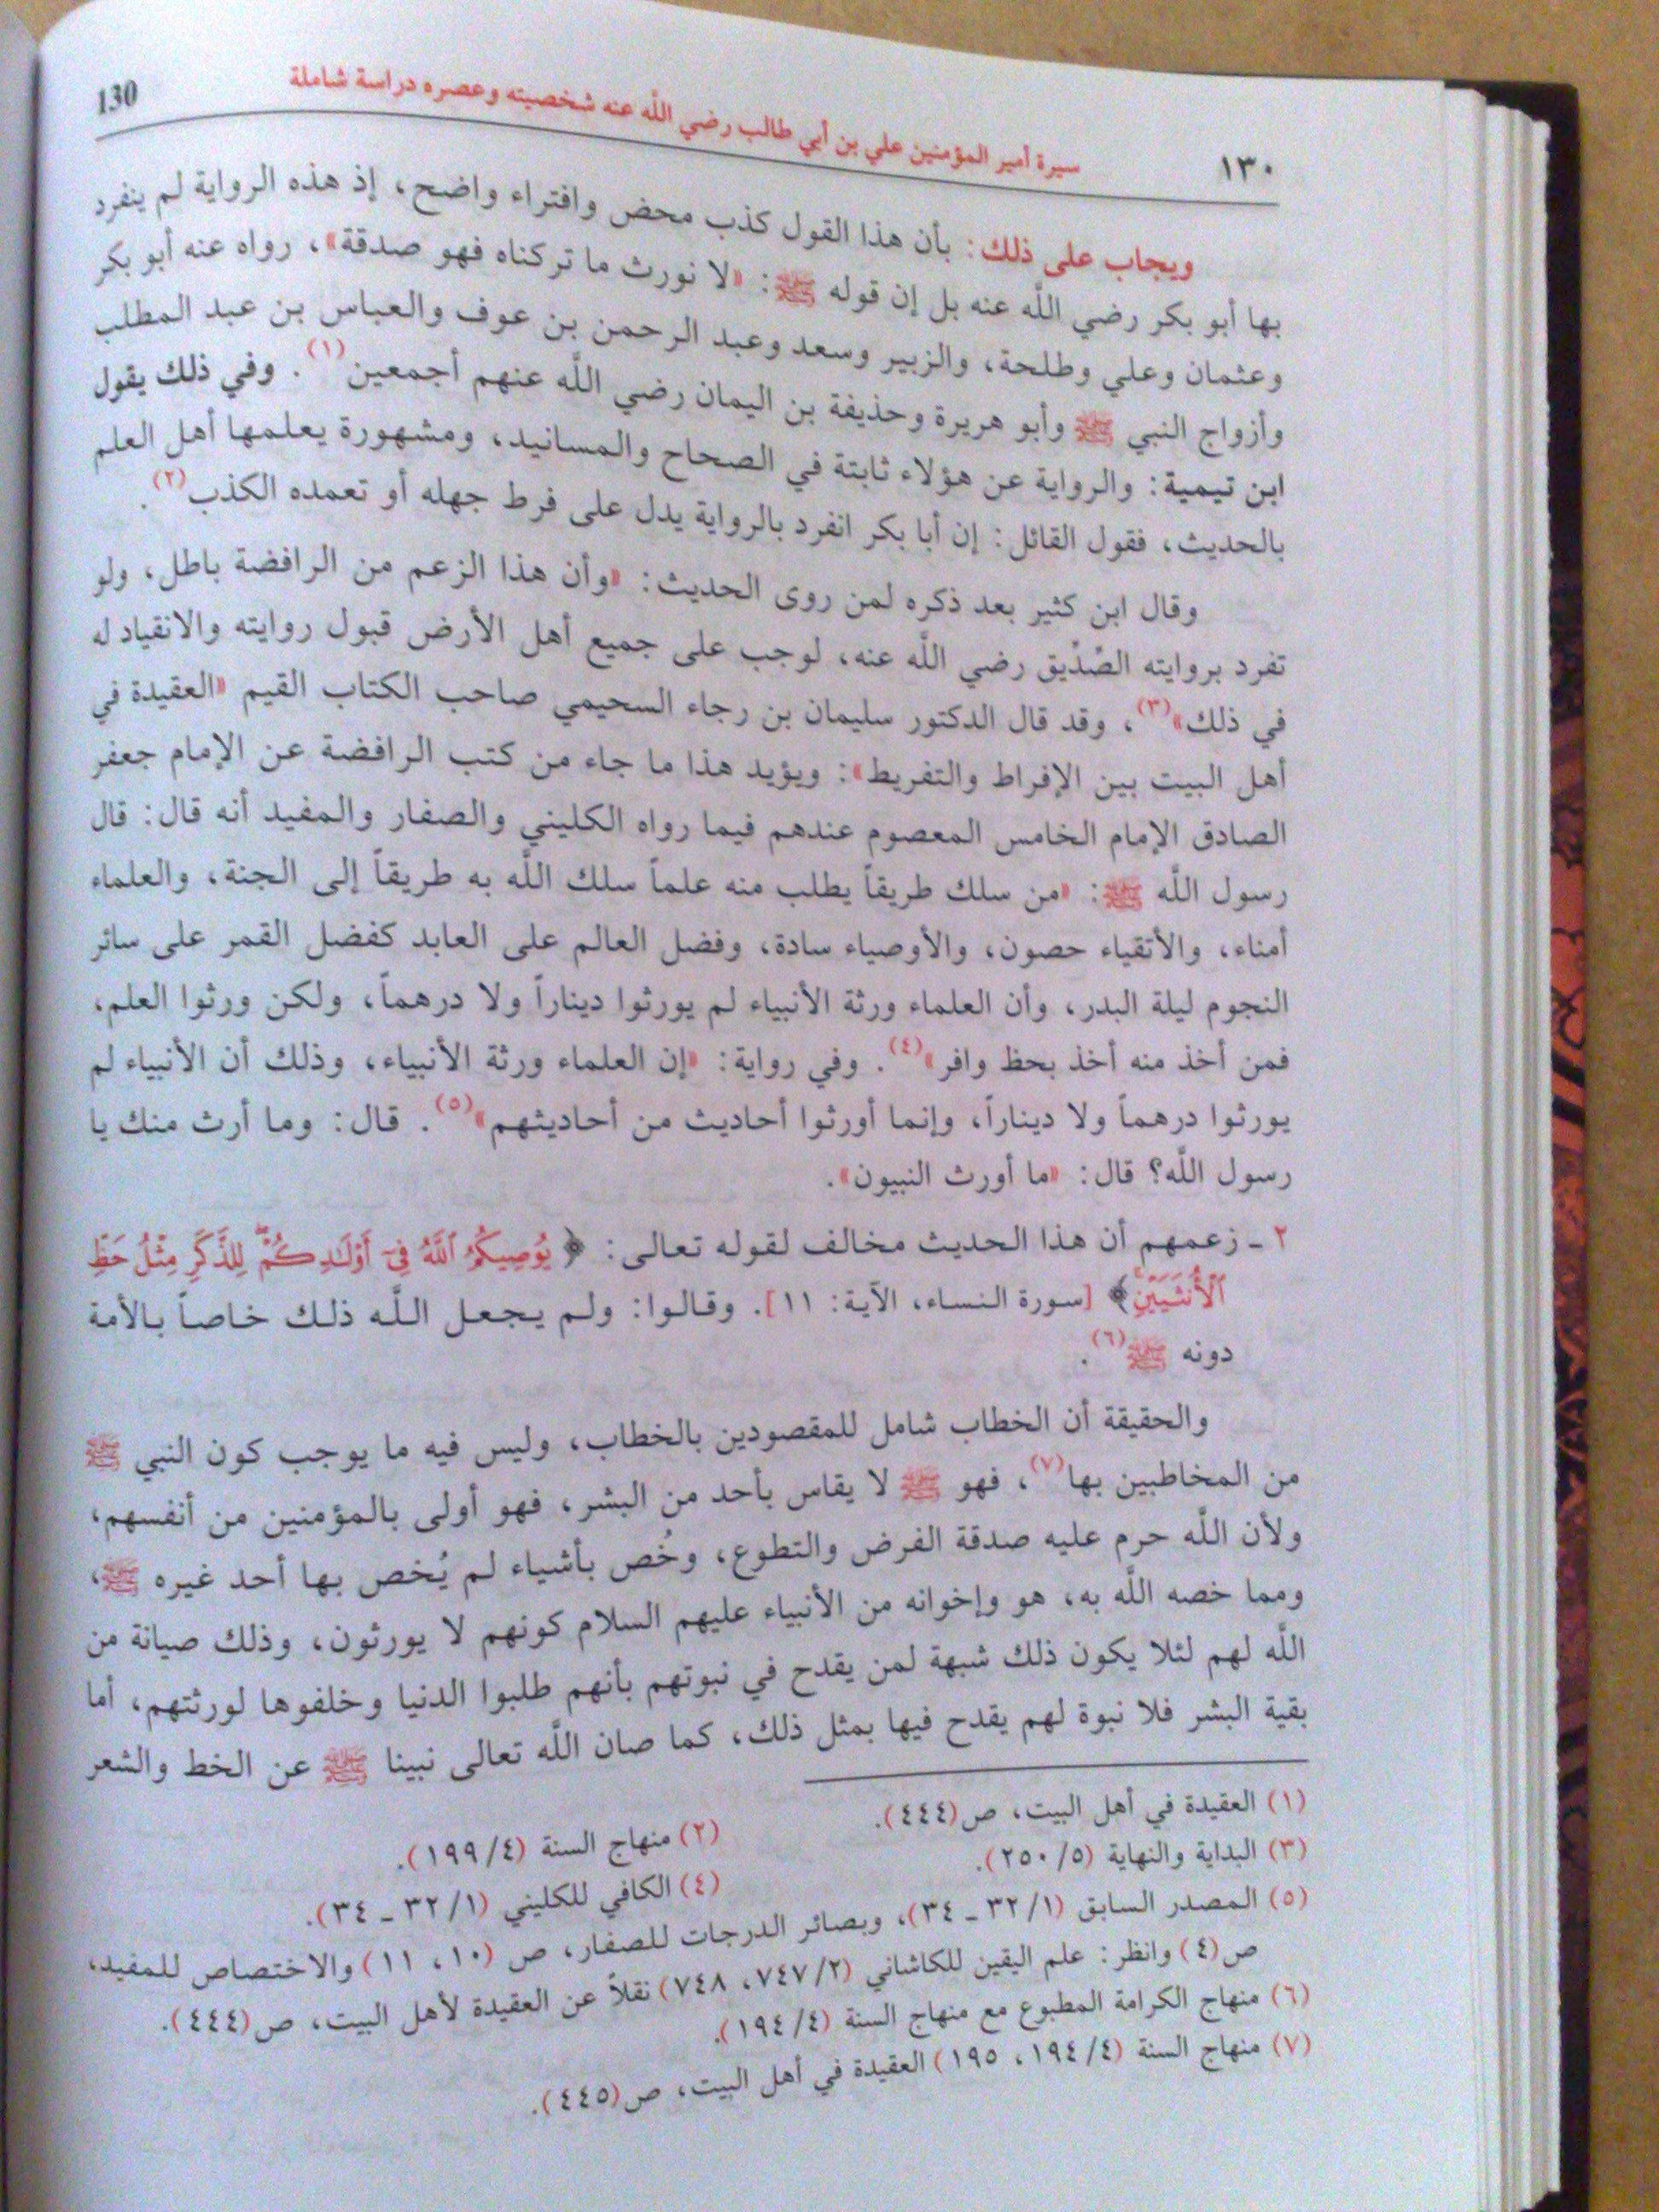 ١٣٠ سيرة أمير المؤمنين علي بن أبي طالب رضي اللّه عنه شخصيته وعصره دراسة شاملة 130
ويجاب على ذلك: بأن هذا القول كذب محض وافتراء واضح، إذ هذه الرواية لم ينفرد
بها أبو بكر رضي اللّه عنه بل إن قوله ﷺ: «لا نورث ما تركناه فهو صدقة»، رواه عنه أبو بكر
وعثمان وعلي وطلحة، والزبير وسعد وعبد الرحمن بن عوف والعباس بن عبد المطلب
وأزواج النبي ﷺ وأبو هريرة وحذيفة بن اليمان رضي اللّه عنهم أجمعين(١). وفي ذلك يقول
ابن تيمية: والرواية عن هؤلاء ثابتة في الصحاح والمسانيد، ومشهورة يعلمها أهل العلم
بالحديث، فقول القائل: إن أبا بكر انفرد بالرواية يدل على فرط جهله أو تعمده الكذب(٢).
وقال ابن كثير بعد ذكره لمن روى الحديث: «وأن هذا الزعم من الرافضة باطل، ولو
تفرد بروايته الصِّدِّيق رضي اللّه عنه، لوجب على جميع أهل الأرض قبول روايته والانقياد له
في ذلك»(٣)، وقد قال الدكتور سليمان بن رجاء السحيمي صاحب الكتاب القيم «العقيدة في
أهل البيت بين الإفراط والتفريط»: ويؤيد هذا ما جاء من كتب الرافضة عن الإمام جعفر
الصادق الإمام الخامس المعصوم عندهم فيما رواه الكليني والصفار والمفيد أنه قال: قال
رسول اللّه ﷺ: «من سلك طريقاً يطلب منه علماً سلك اللّه به طريقاً إلى الجنة، والعلماء
أمناء، والأتقياء حصون، والأوصياء سادة، وفضل العالم على العابد كفضل القمر على سائر
النجوم ليلة البدر، وأن العلماء ورثة الأنبياء لم يورثوا ديناراً ولا درهماً، ولكن ورثوا العلم،
فمن أخذ منه أخذ بحظ وافر»(٤). وفي رواية: «إن العلماء ورثة الأنبياء، وذلك أن الأنبياء لم
يورثوا درهماً ولا ديناراً، وإنما أورثوا أحاديث من أحاديثهم»(٥). قال: وما أرث منك يا
رسول اللّه؟ قال: «ما أورث النبيون».
٢ ـ زعمهم أن هذا الحديث مخالف لقوله تعالى: ﴿يُوصِيكُمُ ٱللَّهُ فِىٓ أَوْلَٰدِكُمْ ۖ لِلذَّكَرِ مِثْلُ حَظِّ
ٱلْأُنثَيَيْنِ ۚ﴾ [سورة النساء، الآية: ١١]. وقالوا: ولم يجعل اللّه ذلك خاصاً بالأمة
دونه ﷺ(٦).
والحقيقة أن الخطاب شامل للمقصودين بالخطاب، وليس فيه ما يوجب كون النبي ﷺ
من المخاطبين بها(٧)، فهو ﷺ لا يقاس بأحد من البشر، فهو أولى بالمؤمنين من أنفسهم،
ولأن اللّه حرم عليه صدقة الفرض والتطوع، وخُص بأشياء لم يُخص بها أحد غيره ﷺ،
ومما خصه اللّه به، هو وإخوانه من الأنبياء عليهم السلام كونهم لا يورثون، وذلك صيانة من
اللّه لهم لئلا يكون ذلك شبهة لمن يقدح في نبوتهم بأنهم طلبوا الدنيا وخلفوها لورثتهم، أما
بقية البشر فلا نبوة لهم يقدح فيها بمثل ذلك، كما صان اللّه تعالى نبينا ﷺ عن الخط والشعر
(١) العقيدة في أهل البيت، ص(٤٤٤).
(٢) منهاج السنة (٤/ ١٩٩).
(٣) البداية والنهاية (٥/ ٢٥٠).
(٤) الكافي للكليني (١/ ٣٢ ـ ٣٤).
(٥) المصدر السابق (١/ ٣٢ ـ ٣٤)، وبصائر الدرجات للصفار، ص (١٠، ١١) والاختصاص للمفيد،
ص(٤) وانظر: علم اليقين للكاشاني (٢/ ٧٤٧، ٧٤٨) نقلاً عن العقيدة لأهل البيت، ص(٤٤٤).
(٦) منهاج الكرامة المطبوع مع منهاج السنة (٤/ ١٩٤).
(٧) منهاج السنة (٤/ ١٩٤، ١٩٥) العقيدة في أهل البيت، ص(٤٤٥).